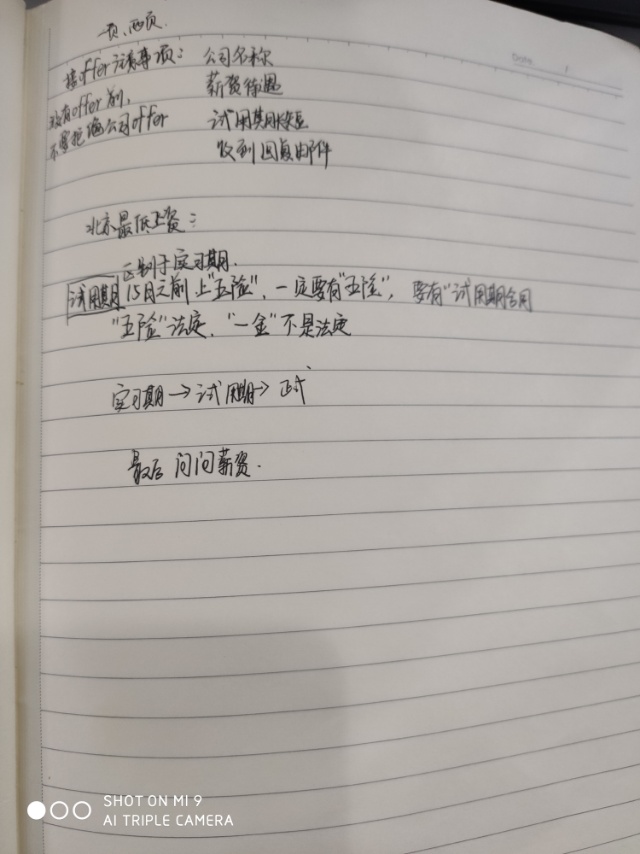 一页、两页.
Date /
接offer注意事项: 公司名称
薪资待遇
没有offer前,
不要拒绝公司offer 试用期长短
收到回复邮件
北京最低工资:
区别于实习期.
试用期 15日之前上"五险", 一定要有"五险", 要有"试用期合同
"五险"法定, "一金"不是法定
实习期→试用期→正式
最后问问薪资.
SHOT ON MI 9
AI TRIPLE CAMERA